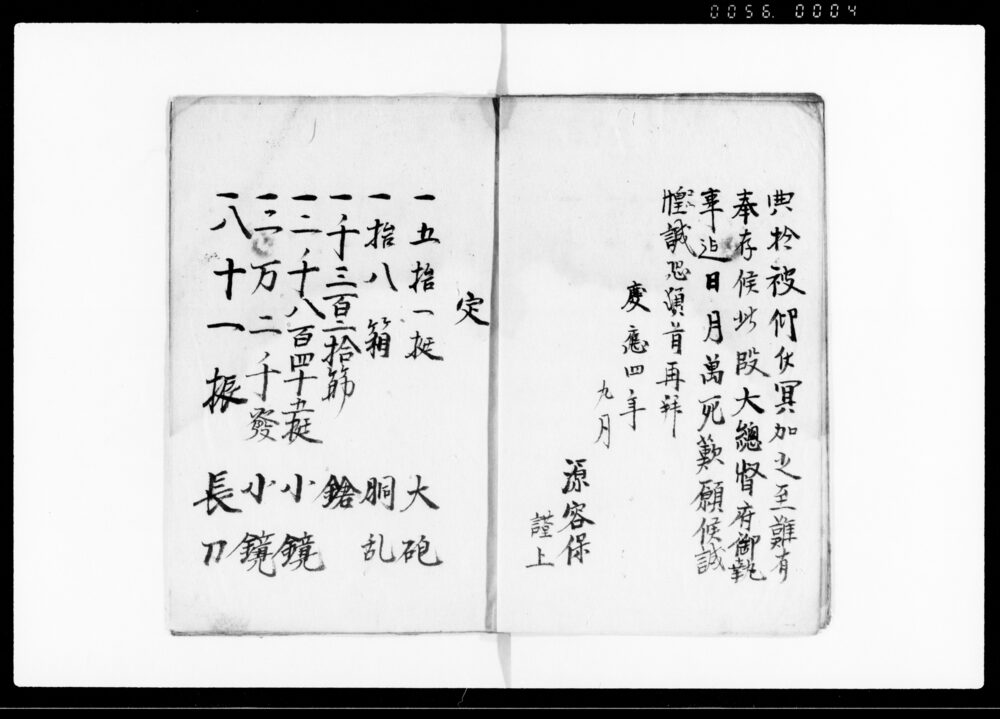 0056. 0004
典於被仰付冥加之至難有
奉存候此段大總督府御執
事迠日月萬死歎願候誠
惶誠恐頓首再拜
慶應四年
九月
源容保
謹上
定
一五拾一挺 大砲
一拾八箱 胴乱
一千三百二拾筋 鎗
一二千八百四十五挺 小鏡
一二万二千發 小鏡
一八十一振 長刀